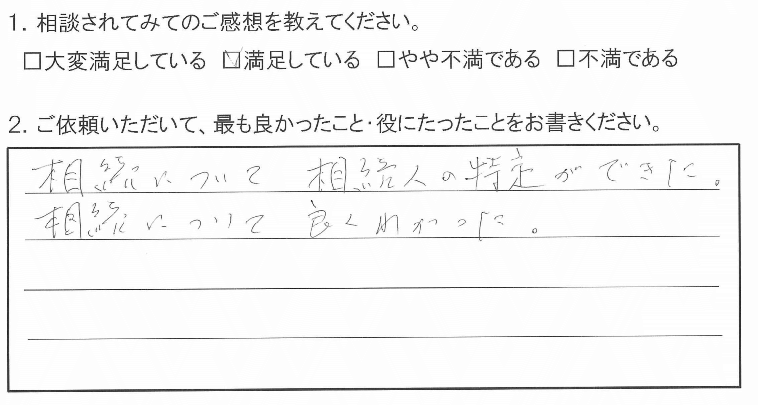 1. 相談されてみてのご感想を教えてください。
□大変満足している ☑満足している □やや不満である □不満である
2. ご依頼いただいて、最も良かったこと・役にたったことをお書きください。
相続について 相続人の特定ができた。
相続について良くわかった。